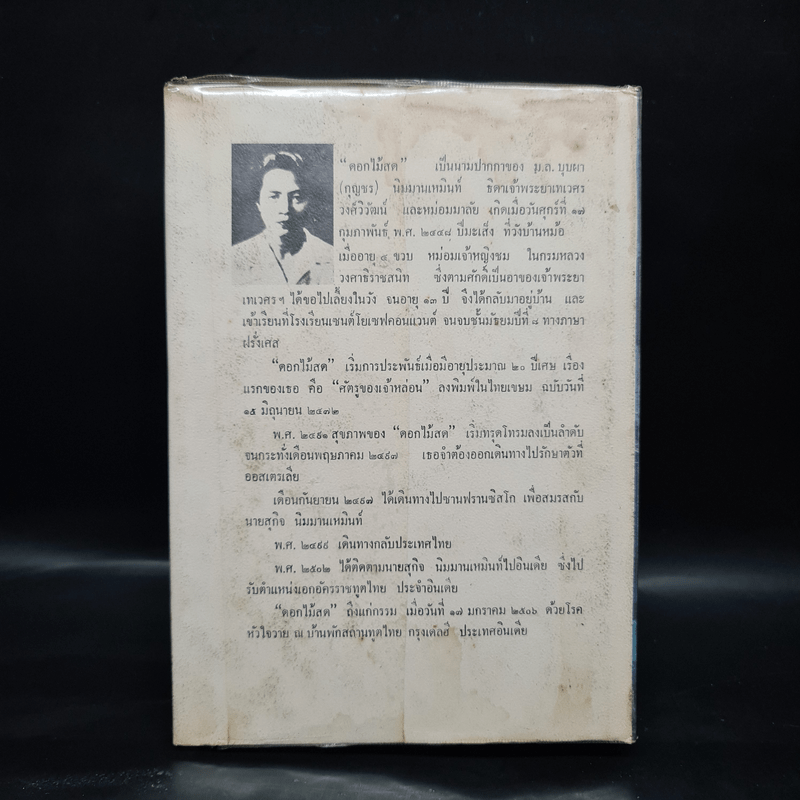 “ดอกไม้สด” เป็นนามปากกาของ ม.ล. บุบผา
(กุญชร) นิมมานเหมินท์ ธิดาเจ้าพระยาเทเวศร
วงศ์วิวัฒน์ และหม่อมมาลัย เกิดเมื่อวันศุกร์ที่ ๑๗
กุมภาพันธ์ พ.ศ. ๒๔๔๘ ปีมะเส็ง ที่วังบ้านหม้อ
เมื่ออายุ ๔ ขวบ หม่อมเจ้าหญิงชม ในกรมหลวง
วงศาธิราชสนิท ซึ่งตามศักดิ์เป็นอาของเจ้าพระยา
เทเวศร ฯ ได้ขอไปเลี้ยงในวัง จนอายุ ๑๓ ปี จึงได้กลับมาอยู่บ้าน และ
เข้าเรียนที่โรงเรียนเซนต์โยเซฟคอนแวนต์ จนจบชั้นมัธยมปีที่ ๘ ทางภาษา
ฝรั่งเศส
“ดอกไม้สด” เริ่มการประพันธ์เมื่อมีอายุประมาณ ๒๐ ปีเศษ เรื่อง
แรกของเธอ คือ “ศัตรูของเจ้าหล่อน” ลงพิมพ์ในไทยเขษม ฉบับวันที่
๑๕ มิถุนายน ๒๔๗๒
พ.ศ. ๒๔๙๑ สุขภาพของ “ดอกไม้สด” เริ่มทรุดโทรมลงเป็นลำดับ
จนกระทั่งเดือนพฤษภาคม ๒๔๙๗ เธอจำต้องออกเดินทางไปรักษาตัวที่
ออสเตรเลีย
เดือนกันยายน ๒๔๙๗ ได้เดินทางไปซานฟรานซิสโก เพื่อสมรสกับ
นายสุกิจ นิมมานเหมินท์
พ.ศ. ๒๔๙๙ เดินทางกลับประเทศไทย
พ.ศ. ๒๕๐๒ ได้ติดตามนายสุกิจ นิมมานเหมินท์ไปอินเดีย ซึ่งไป
รับตำแหน่งเอกอัครราชทูตไทย ประจำอินเดีย
“ดอกไม้สด” ถึงแก่กรรม เมื่อวันที่ ๑๗ มกราคม ๒๕๐๖ ด้วยโรค
หัวใจวาย ณ บ้านพักสถานทูตไทย กรุงเดลฮี ประเทศอินเดีย